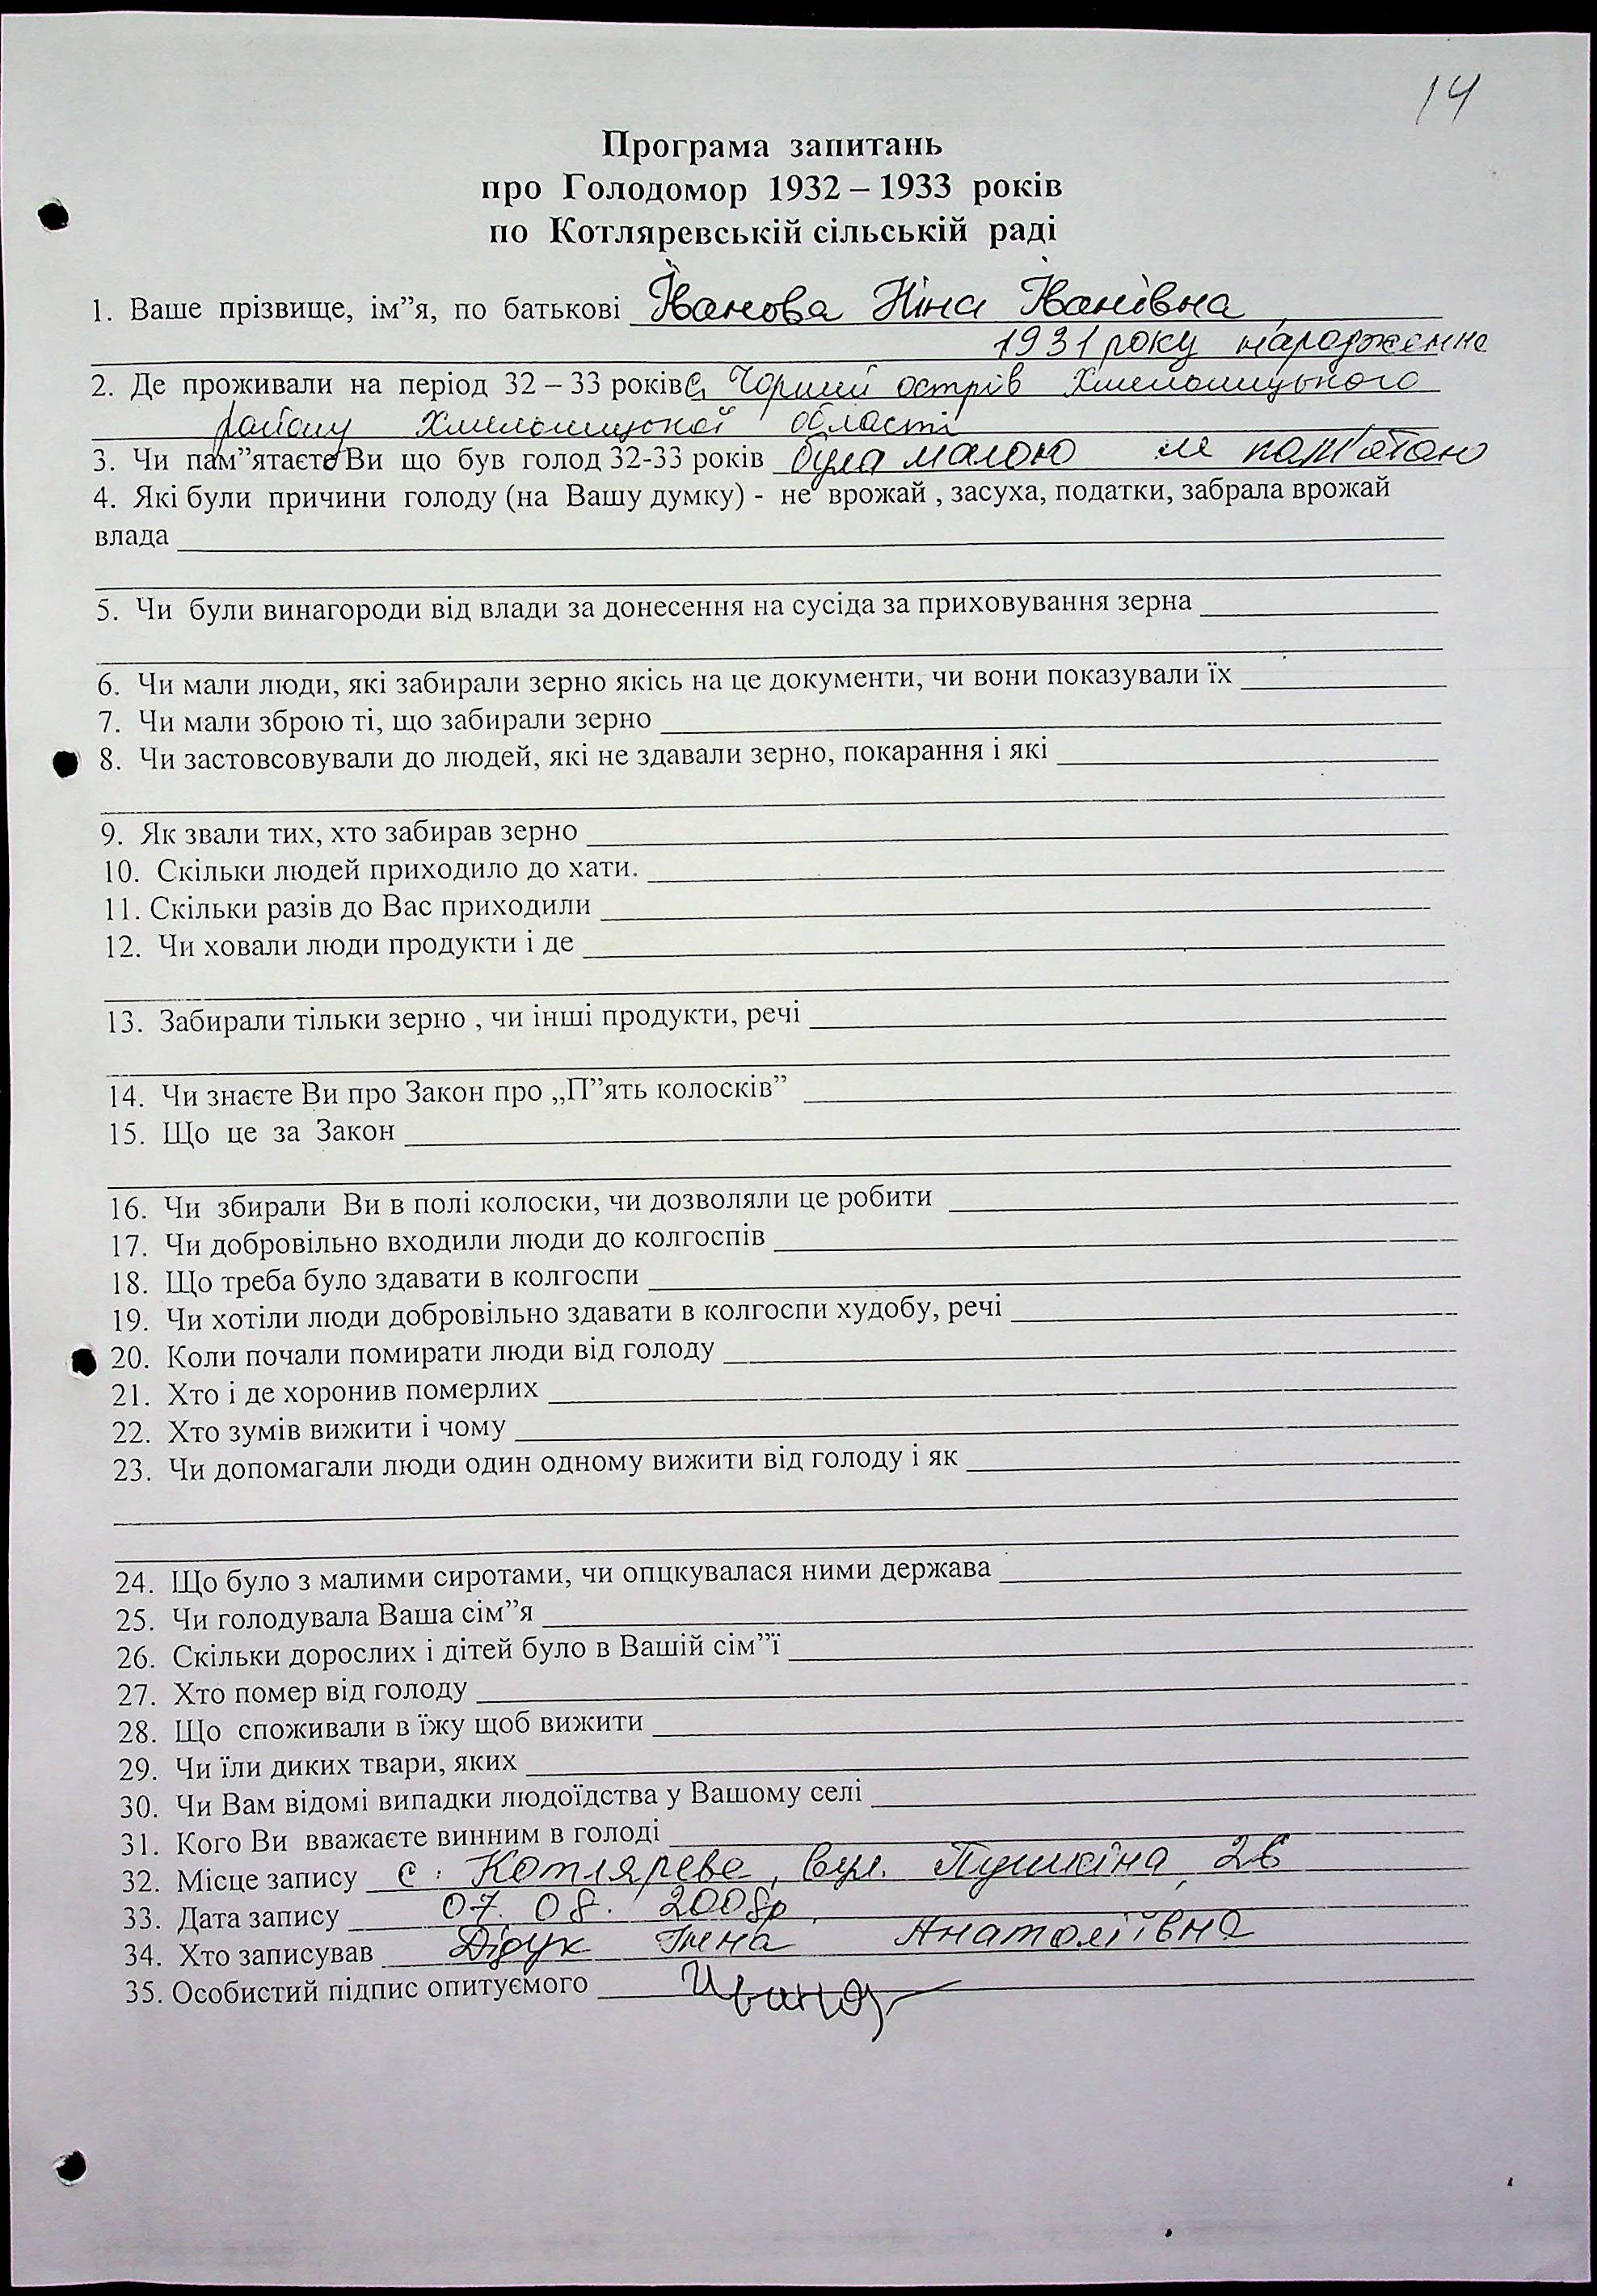 14
Програма запитань
про Голодомор 1932 – 1933 років
по Котляревській сільській раді
1. Ваше прізвище, ім”я, по батькові Іванова Ніна Іванівна,
1931 року народження
2. Де проживали на період 32 – 33 років с. Чорний острів Хмельницького
району Хмельницької області
3. Чи пам”ятаєте Ви що був голод 32-33 років була малою не пам'ятаю
4. Які були причини голоду (на Вашу думку) - не врожай , засуха, податки, забрала врожай
влада
5. Чи були винагороди від влади за донесення на сусіда за приховування зерна
6. Чи мали люди, які забирали зерно якісь на це документи, чи вони показували їх
7. Чи мали зброю ті, що забирали зерно
8. Чи застовсовували до людей, які не здавали зерно, покарання і які
9. Як звали тих, хто забирав зерно
10. Скільки людей приходило до хати.
11. Скільки разів до Вас приходили
12. Чи ховали люди продукти і де
13. Забирали тільки зерно , чи інші продукти, речі
14. Чи знаєте Ви про Закон про „П”ять колосків”
15. Що це за Закон
16. Чи збирали Ви в полі колоски, чи дозволяли це робити
17. Чи добровільно входили люди до колгоспів
18. Що треба було здавати в колгоспи
19. Чи хотіли люди добровільно здавати в колгоспи худобу, речі
20. Коли почали помирати люди від голоду
21. Хто і де хоронив померлих
22. Хто зумів вижити і чому
23. Чи допомагали люди один одному вижити від голоду і як
24. Що було з малими сиротами, чи опцкувалася ними держава
25. Чи голодувала Ваша сім”я
26. Скільки дорослих і дітей було в Вашій сім”ї
27. Хто помер від голоду
28. Що споживали в їжу щоб вижити
29. Чи їли диких твари, яких
30. Чи Вам відомі випадки людоїдства у Вашому селі
31. Кого Ви вважаєте винним в голоді
32. Місце запису с. Котляреве, вул. Пушкіна, 26
33. Дата запису 07. 08. 2008р.
34. Хто записував Дідук Інна Анатоліївна
35. Особистий підпис опитуємого